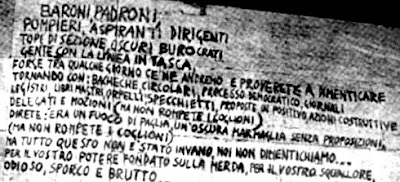 BARONI, PADRONI,
POMPIERI, ASPIRANTI DIRIGENTI
TOPI DI SEZIONE, OSCURI BUROCRATI
GENTE CON LA LINEA IN TASCA
FORSE TRA QUALCHE GIORNO CE NE ANDREMO E PROVERETE A DIMENTICARE
TORNANDO CON: BACHECHE, CIRCOLARI, PROCESSO DEMOCRATICO, GIORNALI
LEGISTRI, LIBRI MASTRI, ORPELLI, SPECCHIETTI, PROPOSTE IN POSITIVO AZIONI COSTRUTTIVE
DELEGATI E MOZIONI (MA NON ROMPETE I COGLIONI)
DIRETE: ERA UN FUOCO DI PAGLIA, UN'OSCURA MARMAGLIA SENZA PROPOSIZIONI,
(MA NON ROMPETE I COGLIONI)
MA TUTTO QUESTO NON È STATO INVANO, NOI NON DIMENTICHIAMO...
PER IL VOSTRO POTERE FONDATO SULLA MERDA, PER IL VOSTRO SQUALLORE,
ODIOSO, SPORCO E BRUTTO...